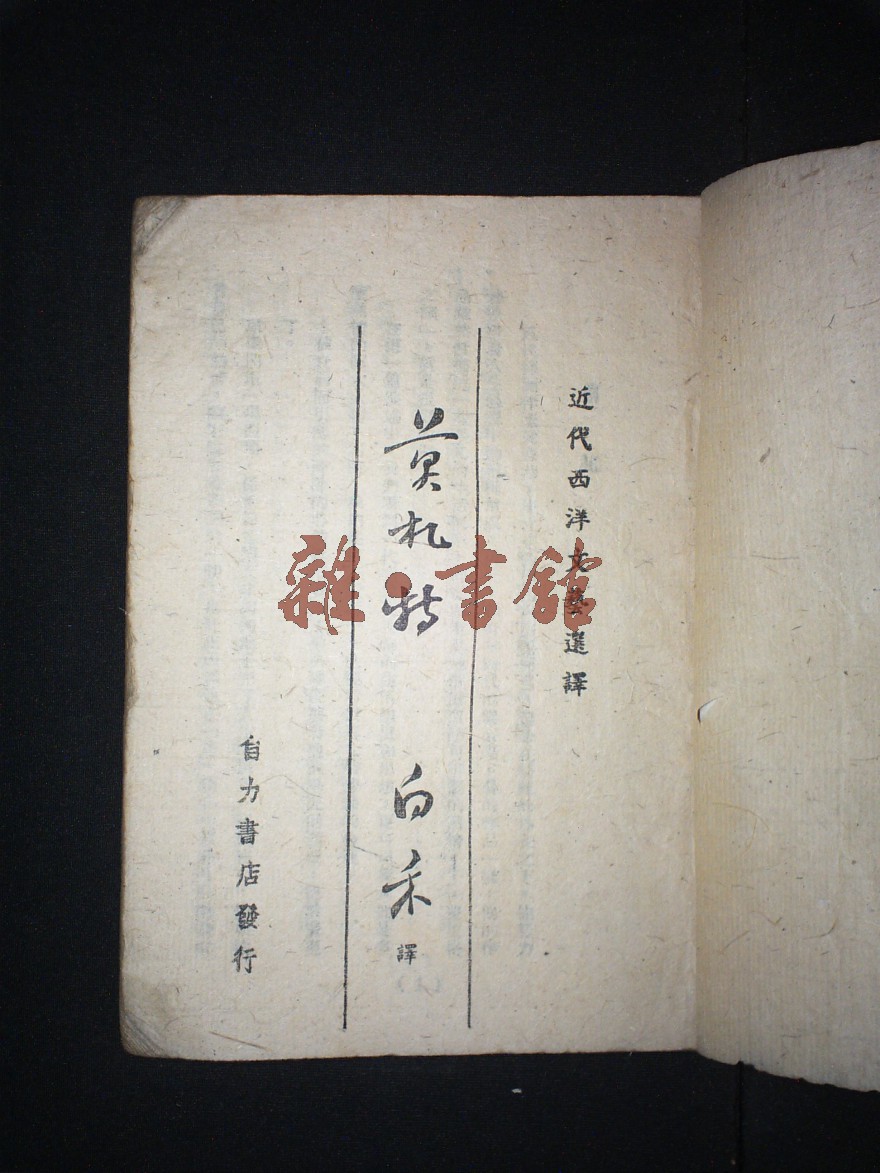 近代西洋文藝選譯
莫札特
白禾譯
自力書店發行
雜·書館